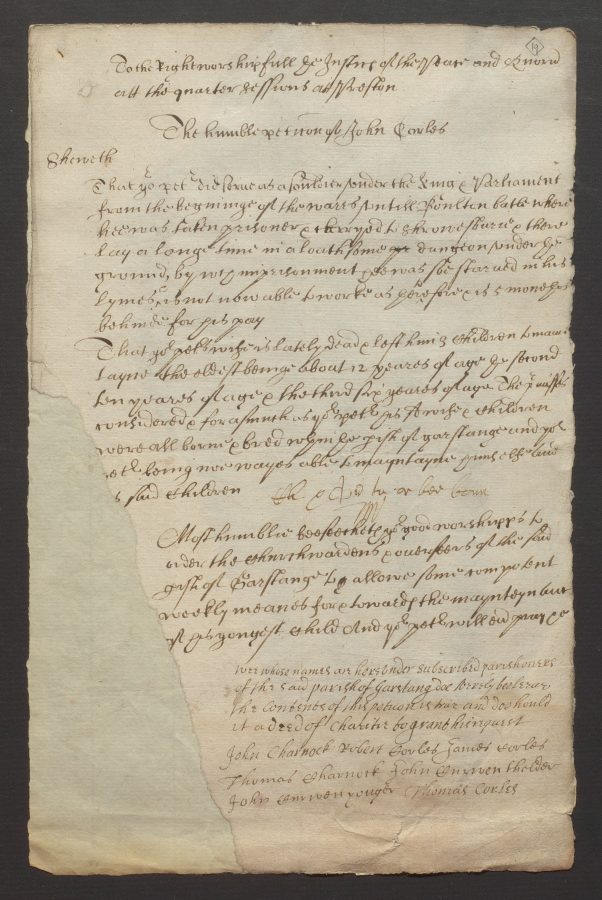 19
To the Right worshipfull ye Justices of the Peace and Quorū
att the quarter sessions at Preston
The humble peticon of John Corles
Sheweth
That yor petr did serve as a souldier under the King & Parliament
from the begininge of the warrs untill Boulton batle where
hee was taken prisoner & carryed to Shrowesburie & there
lay a longe time in a loathsome dungeon under ye
ground, by wch imprisonment hee was soe starved in his
lymes, is not now able to worke as heretofore & is 5 moneths
behinde for his pay
That yor petrs wife is lately dead & left him 3 Children to main
tayne the eldest beinge about 12 yeares of age ye second
ten yeares of age & the third six yeares of age. The pmisses
considered & for asmuch as yor petr his wife & Children
were all borne & bred wthin ye pish of garstange and yor
petr being noe wayes able to mayntayne himselfe and
said Children
Most humblie beseecheth yor good worshipps to
order the Churchwardens & overseers of the said
pish of Garstange to allowe some competent
weekly meanes for & towards the mayntenance
of his yongest Child And yor petr will ever pray &c
Wee whose names are hereunder subscribed parishoners
of the said parish of Garstang doe verely beeleeve
the Contents of this peticon is true and do should
it a deed of Charitie to grant his request
John Charnock Robert Corles James Corles
Thomas Charnock John Curwen thelder
John Curwen yonger Thomas Corles